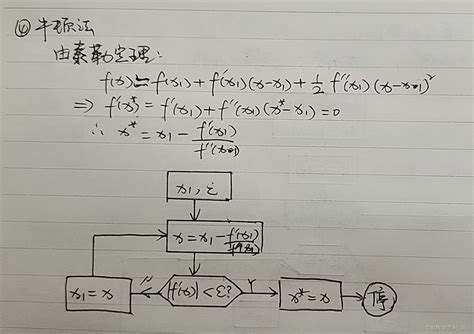 ④ 牛顿法
由泰勒定理:
f(x) ≈ f(x₁) + f'(x₁)(x-x₁) + ½ f''(x₁)(x-x₁)²
⇒ f'(x*) = f'(x₁) + f''(x₁)(x*-x₁) = 0
∴ x* = x₁ - f'(x₁)/f''(x₁)
x₁, ε
x = x₁ - f'(x₁)/f''(x₁)
x₁ = x
N
|f'(x)| < ε?
Y
x* = x
停